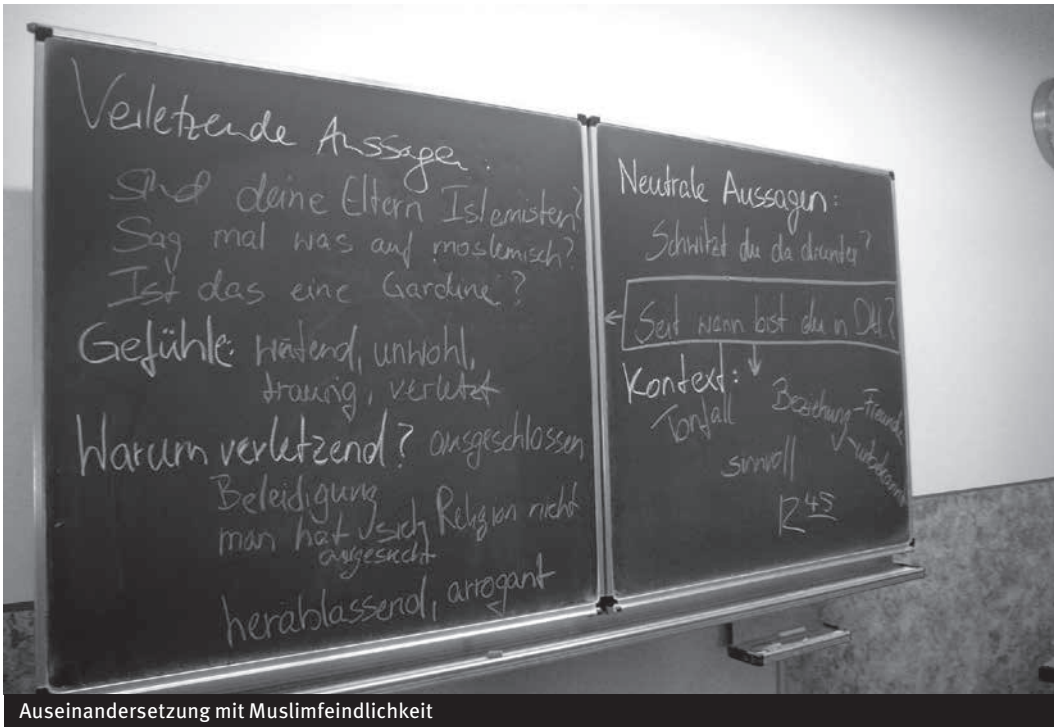 Verletzende Aussagen:
Sind deine Eltern Islamisten?
Sag mal was auf moslemisch?
Ist das eine Gardine?
Gefühle: wütend, unwohl,
traurig, verletzt
Warum verletzend? ausgeschlossen
Beleidigung
man hat sich Religion nicht
ausgesucht
herablassend, arrogant
Neutrale Aussagen:
Schwitzt du da drunter?
Seit wann bist du in Dtl.?
Kontext:
Tonfall
Beziehung - Freunde
- unbekannt
sinnvoll
12 45
Auseinandersetzung mit Muslimfeindlichkeit